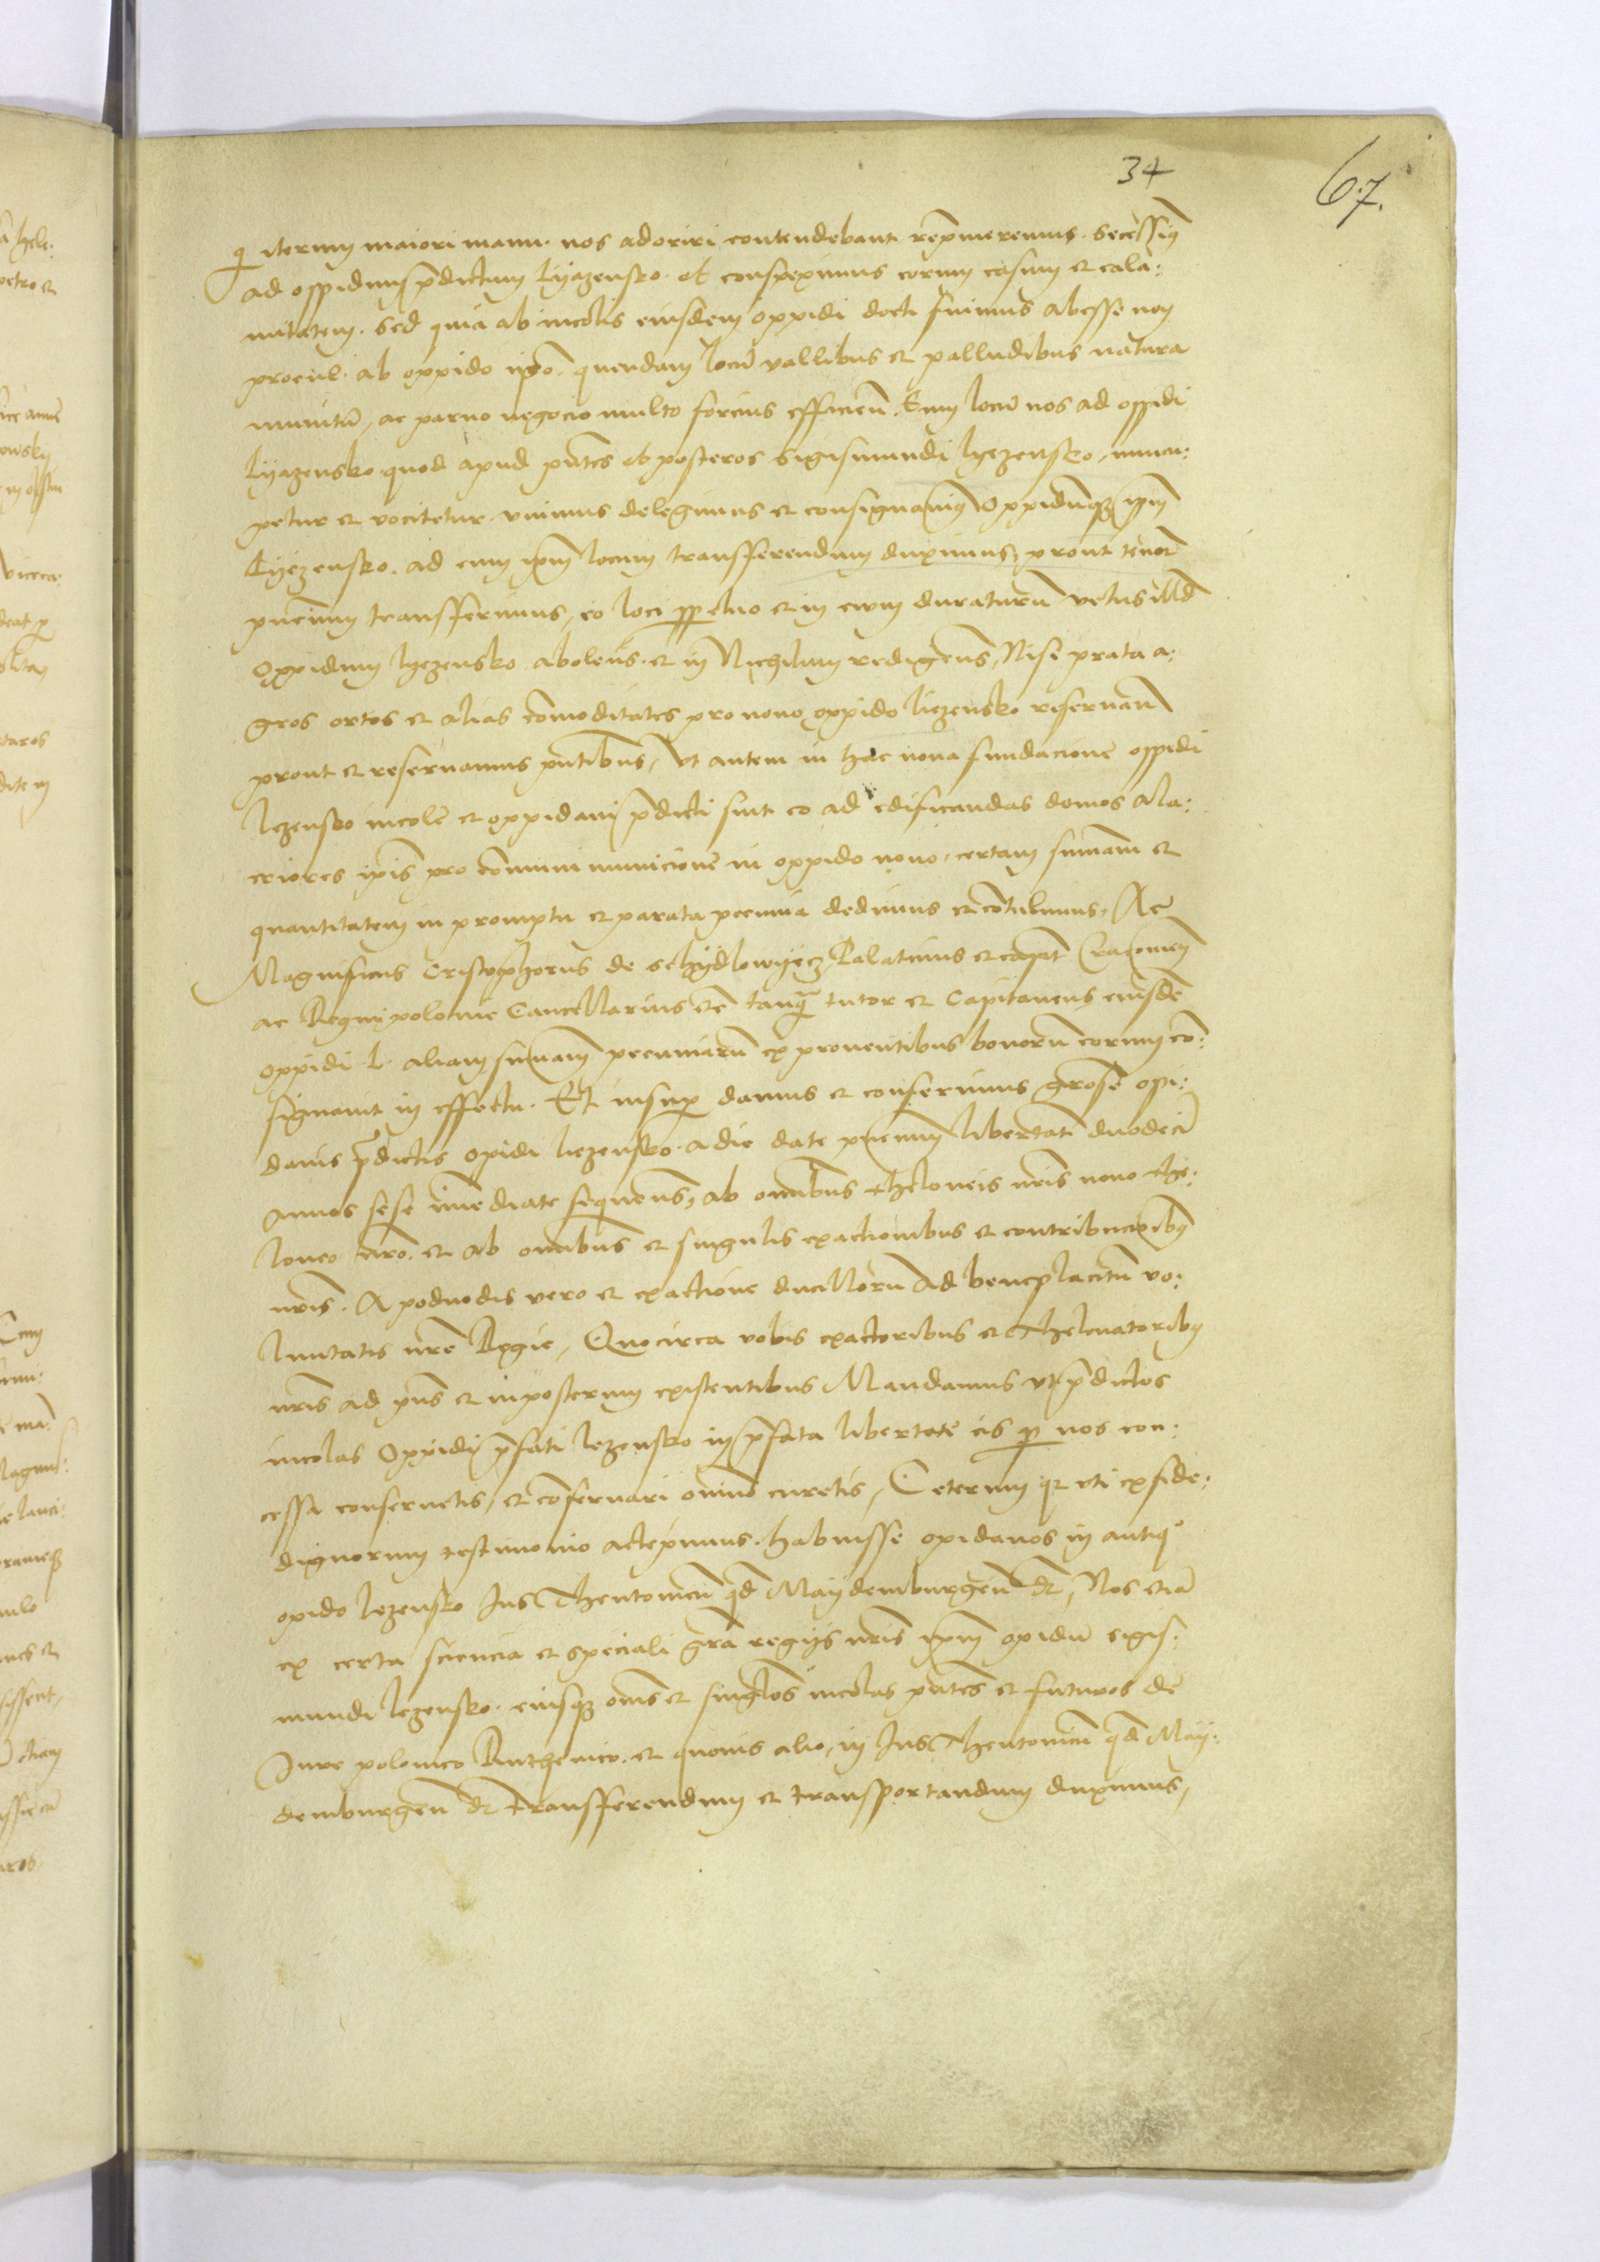 34
67.
qui iterum maiori manu nos adoriri contendebant repmeremus. secessim9
ad oppidum pdictum Lyazensko. et conspeximus eorum casum et cala:
mitatem. Sed quia ab incolis eiusdem oppidi docti fuimus abesse non
procul ab oppido ipso. quendam locū vallibus et palludibus natura
munitū, ac paruo negocio multo forcius efficiend. Eum locū nos ad oppidi
Lyazensko quod apud pntes et posteros Sigismundi lyezensko, nuncu:
petur et vocitetur. vnimus delegimus et consignauim9 Oppidumq3 ipm
Lyezensko. ad eum ipm locum transferendum duximus, prout tenore
pncium transferimus, eo loci ppetuo et in evum duraturū vetus illd
Oppidum lyezensko abolens. et in Nichilum redigens, Nisi prata a:
gros ortos et alias comoditates pro nouo oppido liezensko reseruan
prout et reseruamus pntibus, Vt autem in hac noua fundacione oppidi
lezensko incole et oppidani pdicti sint eo ad edificandas domos ala:
criores ipis pro comuni municione in oppido nouo, certam sumam et
quantitatem in promptu et parata pecunia dedimus et cotulimus, Ac
Magnificus Cristophorus de schydlowyecz, Palatinus et capit Cracouien
ac Regni polonie Cancellarius etc tanq tutor et Capitaneus eiusde
oppidi L. aliam sumam pecuniaru ex prouentibus bonoru eorum co:
signauit in effectu. Et insup damus et conferimus opi:
danis pdictis opidi liezensko. a die date pncium libertate duodeci
annos sese imediate sequens, ab omibus theloneis nris nouo the:
loneo et ab omibus et singulis exactionibus et contribucioib9
nris. A poduodis vero et exactione ducillorū Ad beneplacitū vo:
luntatis nre Regie, Quocirca vobis exactoribus et Theloneatorib9
nris ad pns et inposterum existentibus Mandamus vt pdictos
incolas Oppidi pfati lezensko in pfata libertate eis p nos con:
cessa conseruetis, et coseruari omino curetis, Ceterum q2 vti ex fide:
dignorum testimonio accepimus. habuisse opidanos in antiquo
opido lezensko Jus Theutonicū qd Maydemburgen dr, Nos etia
ex certa sciencia et speciali gra regijs nris ipm opidū sigis:
mundi lezensko. eiusq3 oms et singlos incolas pntes et futuros de
Iure polonico Ruthenico. et quouis alio, in Jus Theutonicū qd May:
demburgen dr transferendum et transportandum duximus,